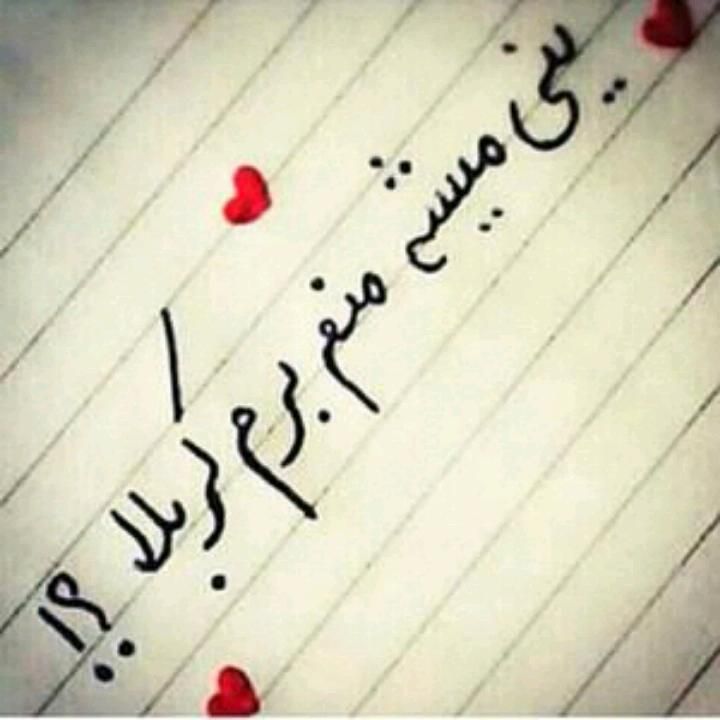 ینی میشه منم برم کربلا ؟!